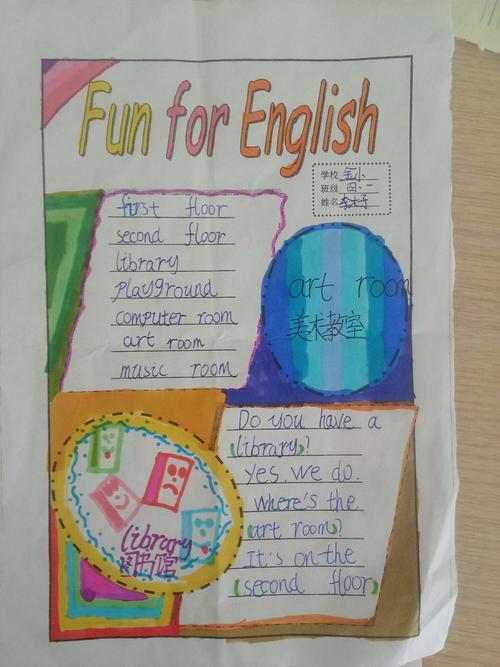 Fun for English
学校 金小
班级 四·一
姓名
first floor
second floor
library
playground
computer room
art room
music room
art room
美术教室
Do you have a
(library)?
yes. we do.
where's the
(art room)?
It's on the
(second floor)
library
图书馆